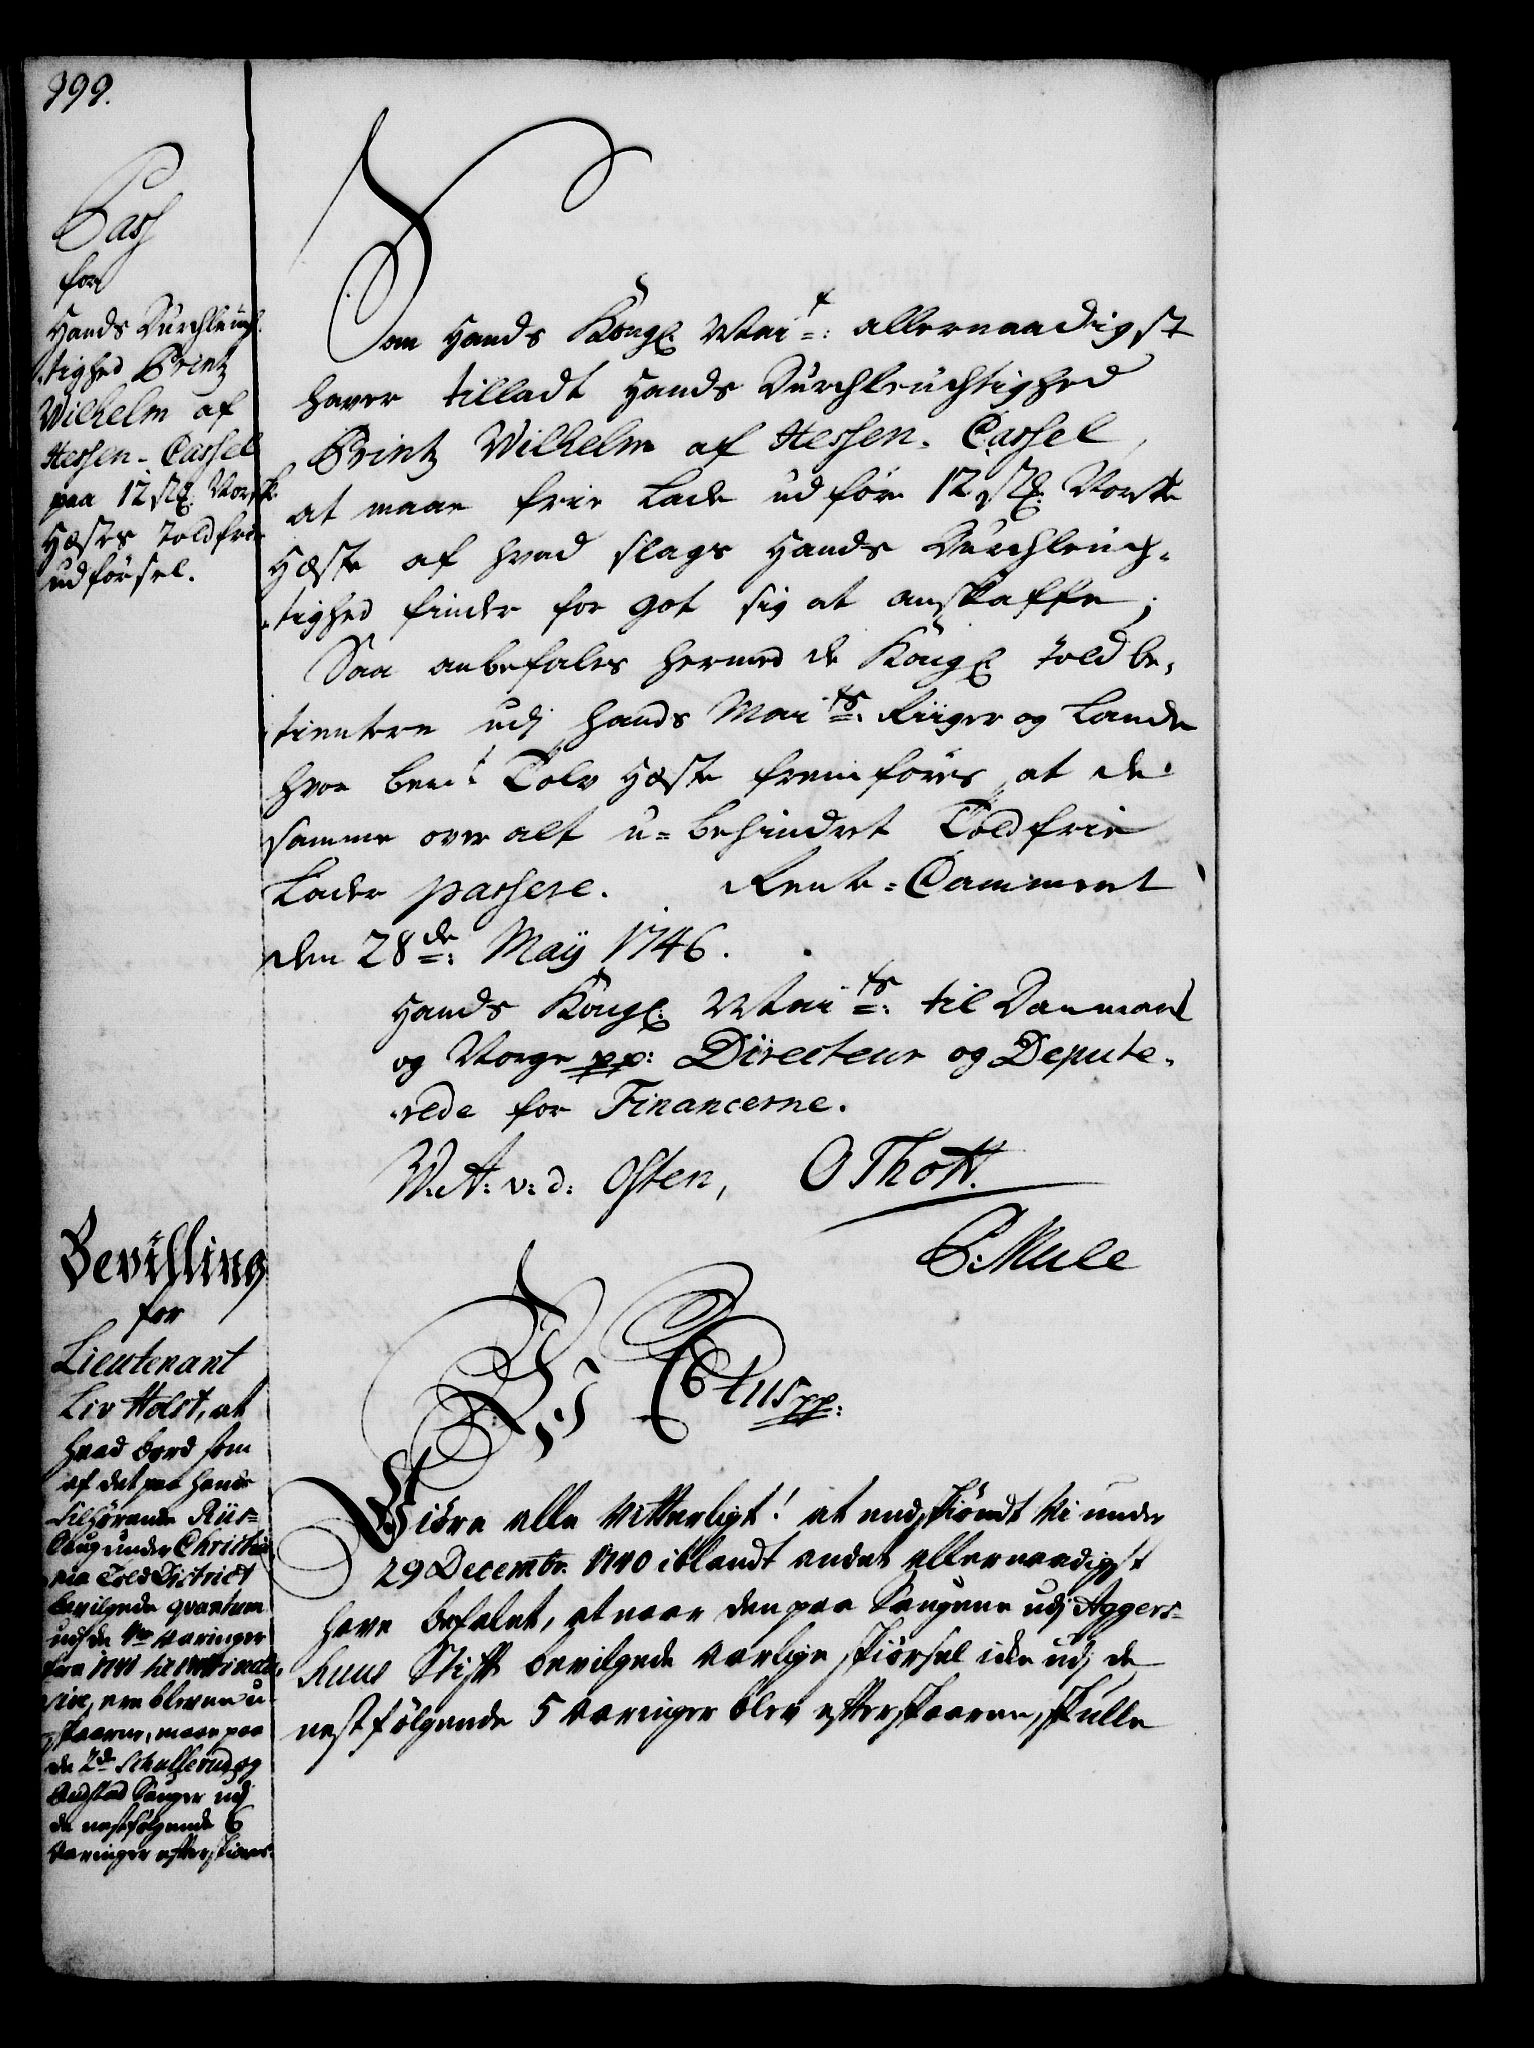 399.
Pass
for
Hands Durchleuch-
tighed Printz
Wilhelm af
Hessen-Cassel
paa 12 st: Norske
Hæstes toldfrie
udförsel.
Som Hands Kongl: Mai:t allernaadigst
haver tilladt Hands Durchleuchtighed
Printz Wilhelm af Hessen-Cassel,
at maae frie lade udföre 12 st: Norske
Hæste af hvad slags Hands Durchleuch-
tighed finder for got sig at anskaffe;
Saa anbefales hermed de Kongl: toldbe-
tientere udj Hands Mai:ts Riiger og Lande
hvor bem:te Tolv Hæste fremföres, at de
samme over alt u-behindret Toldfrie
Lader passere. Rente-Cammeret
den 28de: Maÿ 1746.
Hands Kongl: Mai:ts til Danmark
og Norge pp: Directeur og Depute-
rede for Financerne.
W: A: v: d: Osten, O Thott.
P. Mule
Bevilling
for
Lieutenant
Liv Holst, at
hvad bord som
af det paa hans
tilhørende Riis-
Saug under Christia-
nia Told District
bevilgede qvantum
udj de 4re Aaringer
fra 1741 til 1744 inclu-
sive, ere blevne u-
skaarne, maae paa
de 2de Schullerud og
Budstad Sauger udj
de nestfølgende 6
Aaringer efterskiæres.
Vi C 6tus pp:
Giøre alle Vitterligt! at endskiøndt Vi under
29 Decembr. 1740 iblandt andet allernaadigst
have befalet, at naar den paa Saugene udj Aggers-
huus Stift bevilgede aarlige skiørsel ikke udj de
nestfølgende 5 Aaringer blev efterskaaren, skulle